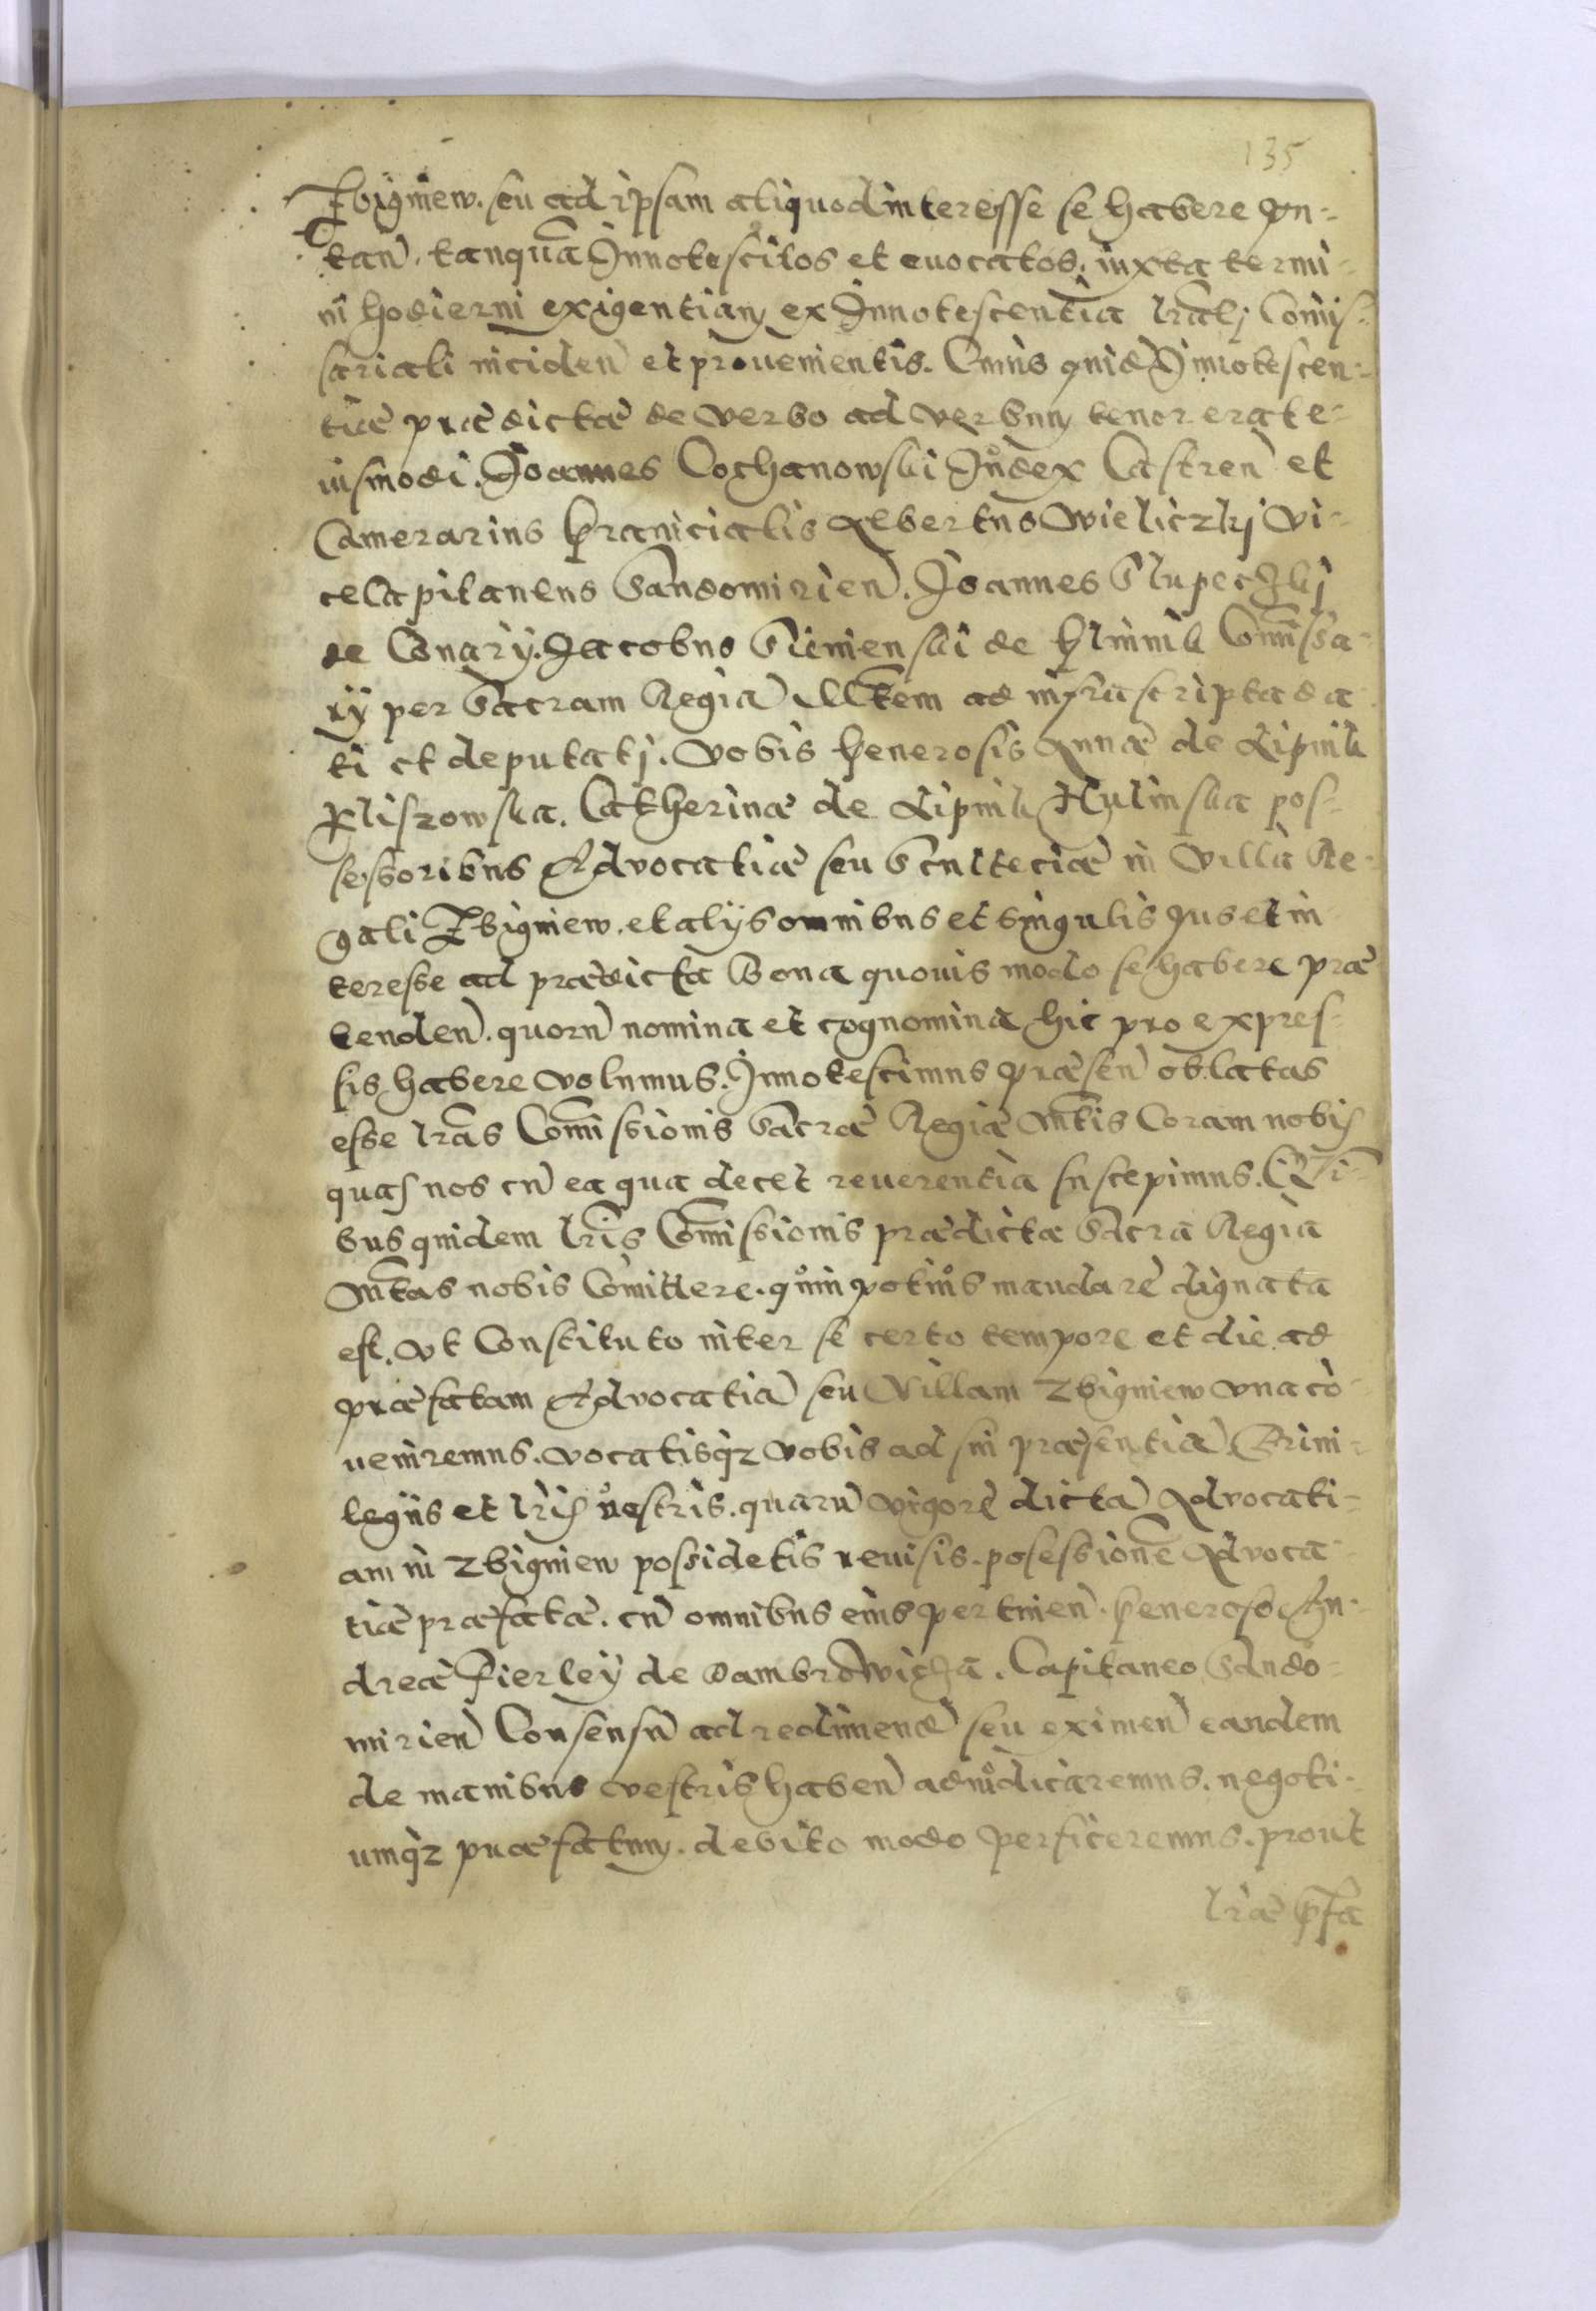 135
Zbigniew. seu ad ipsam aliquod interesse se habere pn-
tan̄. tanquā Innotescitos et euocatos. iuxta termi-
ni hodierni exigentiam ex Innotescentia lrāli Comis-
sariali inciden̄ et prouenientis. Cuius quidē Innotescen-
tiæ prædictæ de verbo ad verbum tenor erat e-
iusmodi. Joannes Cochanowski Judex Castren̄ et
Camerarius Graniciales Albertus Wieliczky Vi-
ceCapitaneus Sandomirien̄. Joannes Slupeczkj
de Conary. Jacobus Sienienski de Klimin Comissa-
ry per Sacram Regiā Mtem ad infrascripta da
ti et deputatj. Vobis Generosis Annæ de Lipnik
Kliszowska. Catherinæ de Lipnik Hulinska pos-
sessoribus Advocatiæ seu Scultetiæ in Villa Re-
gali Zbigniew. et alijs omnibus et singulis Jus et in
teresse ad prædicta Bona quouis modo se habere præ
tenden̄. quorū nomina et cognomina hic pro expres-
sis habere volumus. Innotescimus præsen̄ oblatas
esse lrās Comissionis Sacræ Regiæ Mtis Coram nobis
quas nos cū ea qua decet reuerentia suscepimus. Qui-
bus quidem lris Comissionis prædictæ Sacra Regia
Mtas nobis Comittere. quin potius mandare dignata
est. Vt Constituto inter se certo tempore et die ad
præfatam Advocatiā seu Villam Zbigniew vna cō
ueniremus. vocatisqz vobis ad sui præsentiā. Priui-
legijs et lris vestris. quarū vigore dictā Advocati-
am in Zbigniew possidetis reuisis. posessionē Advoca-
tiæ præfatæ. cū omnibus eius pertinen̄. Generoso An-
dreæ Fierleÿ de Dambrowicza. Capitaneo Sando-
mirien̄ Consensū ad redimendā seu eximen̄ eandem
de manibus vestris haben̄ adiudicaremus. negoti-
umqz præfatum. debito modo perficeremus. prout
lræ pfa